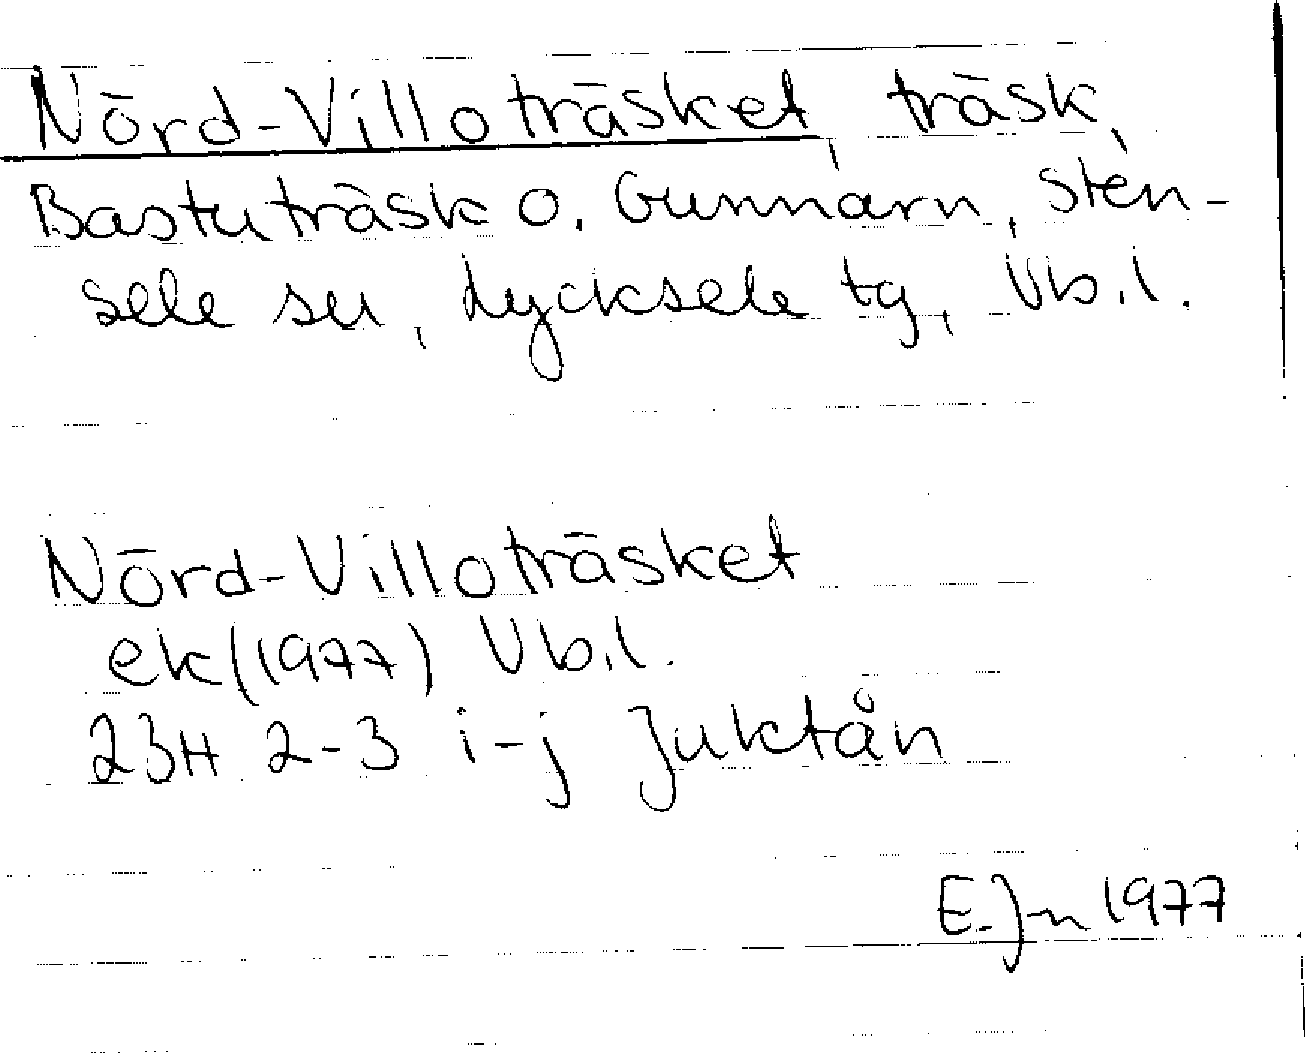 Nörd-Villoträsket träsk,
Bastuträsk o. Gunnarn, Sten-
sele sn, Lycksele tg, Vb.l.
Nörd-Villoträsket
ek (1977) Vb.l.
23H 2-3 i-j Juktån
E. J-n 1977